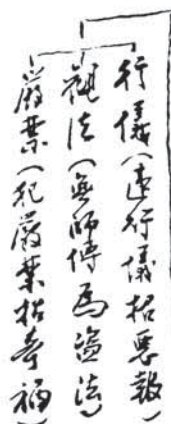 行儀(違行儀招惡報)
觀法(無師傳為盜法)
嚴葉(犯嚴葉招奇禍)